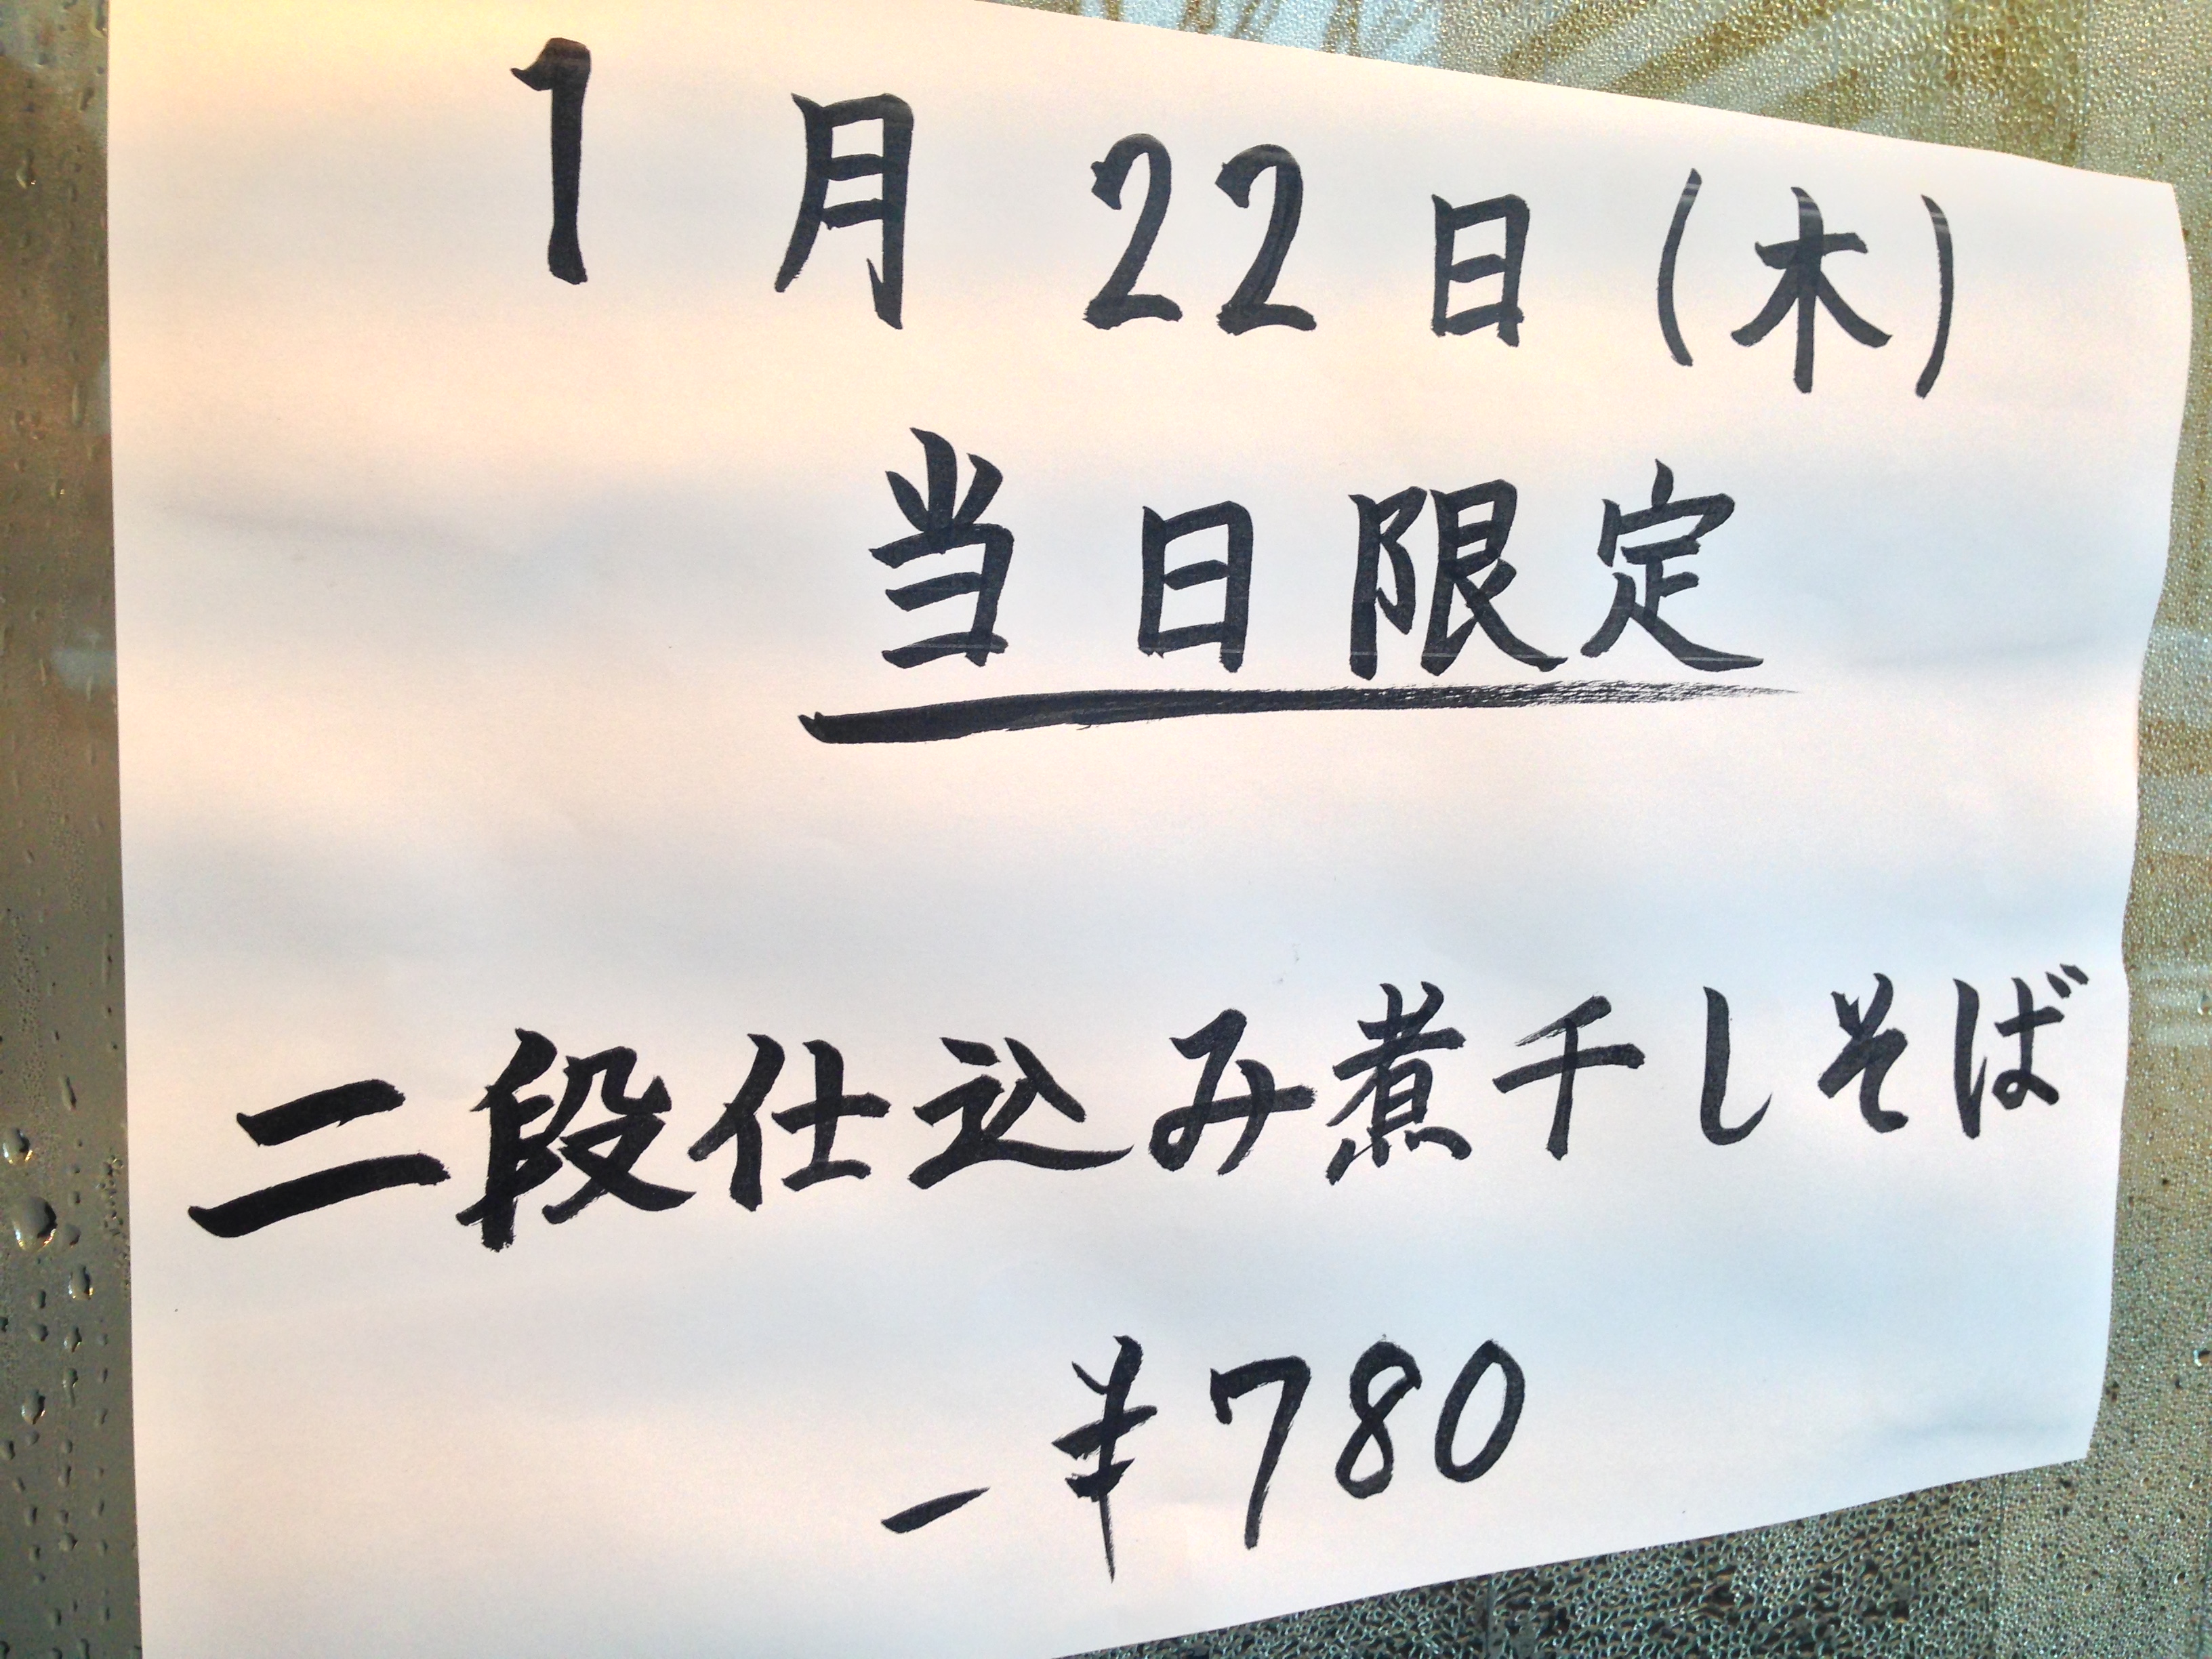 1月22日(木)
当日限定
二段仕込み煮干しそば
-¥780